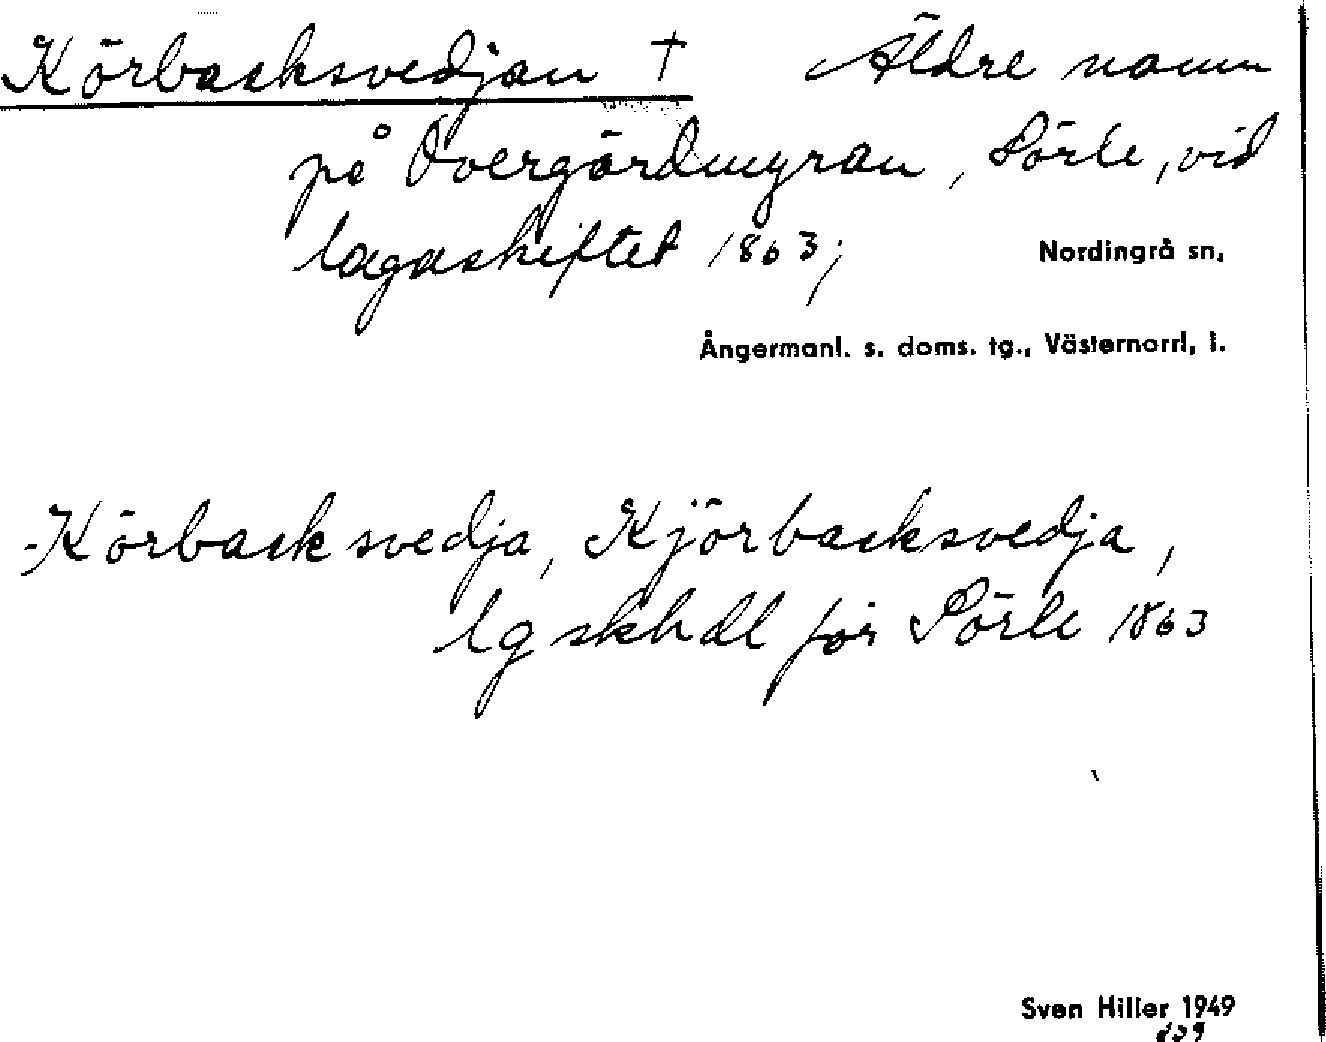 Körbacksvedjan † Äldre namn
på Övergårdmyran, Sörle, vid
lagaskiftet 1863;
Nordingrå sn,
Ångermanl. s. doms. tg., Västernorrl. l.
Körbacksvedja, Kjörbacksvedja,
lgskhdl för Sörle 1863
Sven Hiller 1949
809